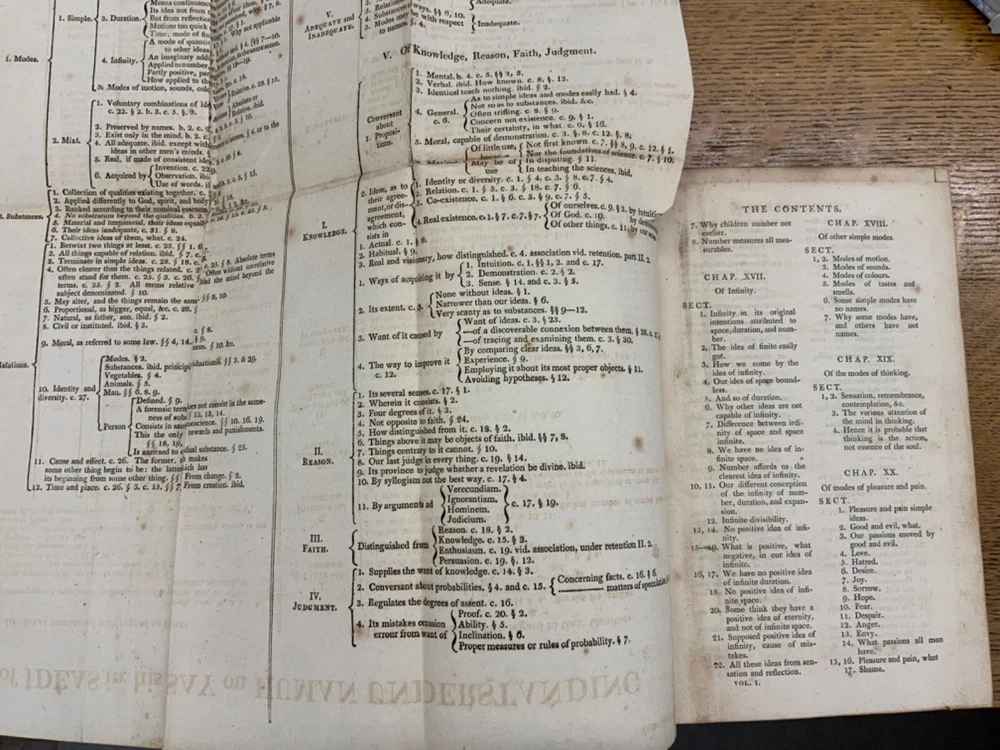 1. Simple.
3. Duration.
But from reflection
Motions too quick
Time, mode of
A mode of
to other ideas
An imaginary
4. Infinity.
Applied to number
Partly positive,
How applied to
5. Modes of motion, sounds,
1. Modes.
1. Voluntary combinations of
c. 22. § 2. b. 3. c. 5. §. 3.
2. Preserved by names. b. 2. c.
3. Exist only in the mind. b. 2. c.
2. Mixt.
4. All adequate. ibid. except
ideas in other men's minds.
5. Real, if made of consistent
Invention. c. 22.
6. Acquired by
Observation.
Use of words.
1. Collection of qualities existing together. c.
2. Applied differently to God, spirit, and body
3. Ranked according to their nominal essence.
2. Substances.
4. No substratum beyond the qualities. b. 2.
5. Material and immaterial, ideas equal
6. Their ideas inadequate. c. 31. § 8.
7. Collective ideas of them, what. c. 24.
1. Betwixt two things at least. c. 25. §§ 1, 6.
2. All things capable of relation. ibid. § 7.
3. Terminate in simple ideas. c. 28. § 18.
4. Often clearer than the things related. c.
often stand for them. c. 25. § 3. c. 26.
terms. c. 25. § 2. All terms relative
subject denominated. § 10.
5. May alter, and the things remain the same
6. Proportional, as bigger, equal, &c. c. 28.
7. Natural, as father, son. ibid. § 2.
8. Civil or instituted. ibid. § 3.
9. Moral, as referred to some law. §§ 4, 14.
Relations.
Modes. § 2.
Substances. ibid.
Vegetables. § 4.
Animals. § 5.
10. Identity and
diversity. c. 27.
Man. §§ 6, 8, 9.
Defined. § 9.
A forensic
ness of
Person
Consists in
This the only
§§ 18, 19,
Is annexed to
11. Cause and effect. c. 26. The former,
some other thing begin to be: the latter
its beginning from some other thing.
12. Time and place. c. 26. § 3. c. 13. §§ 7,
V.
Adequate and
Inadequate.
Adequate.
Inadequate.
V. Of Knowledge, Reason, Faith, Judgment.
1. Mental. b. 4. c. 5. §§ 3, 5.
2. Verbal. ibid. How known. c. 8. §. 12.
3. Identical teach nothing. ibid. § 2.
As to simple ideas and modes easily had. § 4.
Not so as to substances. ibid. &c.
Conversant
about
1. Propositions.
4. General.
c. 6.
Often trifling. c. 8. § 9.
Concern not existence. c. 9. § 1.
Their certainty, in what. c. 6. § 16.
5. Moral, capable of demonstration. c. 3. §. 8. c. 12. §. 8,
Of little use,
Not first known. c. 7. §§ 8, 9. c. 12. § 1.
Nor the foundations of science. c. 7. § 10.
May be of
use
In disputing. § 11.
In teaching the sciences. ibid.
2. Ideas, as to
their agreement,
or disagreement,
which consists
in
1. Identity or diversity. c. 1. § 4. c. 3. § 8. c. 7. § 4.
2. Relation. c. 1. § 5. c. 3. § 18. c. 7. § 6.
3. Co-existence. c. 1. § 6. c. 3. § 9. c. 7. § 5.
4. Real existence. c. 1. § 7. c. 7. § 7.
Of ourselves. c. 9. § 3. by intuition
Of God. c. 10.
Of other things. c. 11.
I.
Knowledge.
1. Actual. c. 1. § 8.
2. Habitual. § 9.
3. Real and visionary, how distinguished. c. 4. association vid. retention. part II. 2
1. Ways of acquiring it by
1. Intuition. c. 1. §§ 1, 2. and c. 17.
2. Demonstration. c. 2. § 2.
3. Sense. § 14. and c. 3. § 5.
2. Its extent. c. 3.
None without ideas. § 1.
Narrower than our ideas. § 6.
Very scanty as to substances. §§ 9—12.
3. Want of it caused by
Want of ideas. c. 3. § 23.
—of a discoverable connexion between them. § 28.
—of tracing and examining them. c. 3. § 30.
4. The way to improve it
c. 12.
By comparing clear ideas. §§ 3, 6, 7.
Experience. § 9.
Employing it about its most proper objects. § 11.
Avoiding hypotheses. § 12.
II.
Reason.
1. Its several senses. c. 17. § 1.
2. Wherein it consists. § 2.
3. Four degrees of it. § 3.
4. Not opposite to faith. § 24.
5. How distinguished from it. c. 18. § 2.
6. Things above it may be objects of faith. ibid. §§ 7, 8.
7. Things contrary to it cannot. § 10.
8. Our last judge in every thing. c. 19. § 14.
9. Its province to judge whether a revelation be divine. ibid.
10. By syllogism not the best way. c. 17. § 4.
11. By arguments ad
Verecundiam.
Ignorantiam.
Hominem.
Judicium.
c. 17. § 19.
III.
Faith.
Distinguished from
Reason. c. 18. § 2.
Knowledge. c. 15. § 3.
Enthusiasm. c. 19. vid. association, under retention II. 2.
Persuasion. c. 19. §. 12.
IV.
Judgment.
1. Supplies the want of knowledge. c. 14. § 3.
2. Conversant about probabilities. § 4. and c. 15.
Concerning facts. c. 16. § 6.
matters of
3. Regulates the degrees of assent. c. 16.
4. Its mistakes occasion
errour from want of
Proof. c. 20. § 2.
Ability. § 5.
Inclination. § 6.
Proper measures or rules of probability. § 7.
THE CONTENTS.
7. Why children number not
earlier.
8. Number measures all measurables.
CHAP. XVII.
Of Infinity.
SECT.
1. Infinity in its original
intentions attributed to
space, duration, and number.
2. The idea of finite easily
got.
3. How we come by the
idea of infinity.
4. Our idea of space boundless.
5. And so of duration.
6. Why other ideas are not
capable of infinity.
7. Difference between infinity
of space and space
infinite.
8. We have no idea of infinite
space.
9. Number affords us the
clearest idea of infinity.
10, 11. Our different conception
of the infinity of number,
duration, and expansion.
12. Infinite divisibility.
13, 14. No positive idea of infinity.
15—19. What is positive, what
negative, in our idea of
infinite.
16, 17. We have no positive idea
of infinite duration.
18. No positive idea of infinite
space.
20. Some think they have a
positive idea of eternity,
and not of infinite space.
21. Supposed positive idea of
infinity, cause of mistakes.
22. All these ideas from sensation
and reflection.
VOL. I.
CHAP. XVIII.
Of other simple modes.
SECT.
1, 2. Modes of motion.
3. Modes of sounds.
4. Modes of colours.
5. Modes of tastes and
smells.
6. Some simple modes have
no names.
7. Why some modes have,
and others have not
names.
CHAP. XIX.
Of the modes of thinking.
SECT.
1, 2. Sensation, remembrance,
contemplation, &c.
3. The various attention of
the mind in thinking.
4. Hence it is probable that
thinking is the action,
not essence of the soul.
CHAP. XX.
Of modes of pleasure and pain.
SECT.
1. Pleasure and pain simple
ideas.
2. Good and evil, what.
3. Our passions moved by
good and evil.
4. Love.
5. Hatred.
6. Desire.
7. Joy.
8. Sorrow.
9. Hope.
10. Fear.
11. Despair.
12. Anger.
13. Envy.
14. What passions all men
have.
15, 16. Pleasure and pain, what
17. Shame.